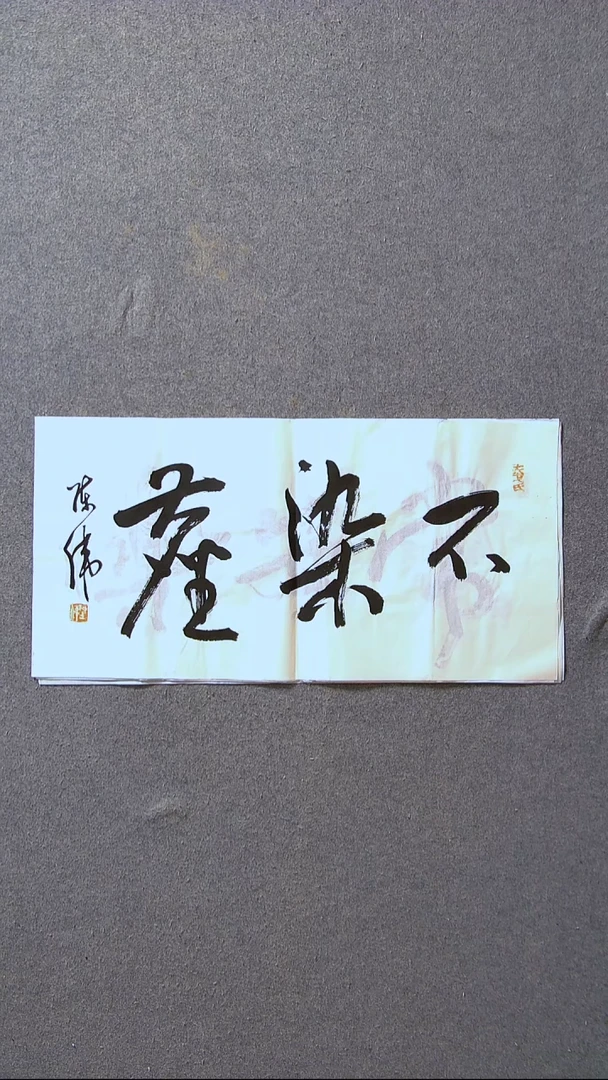 不染塵
陈伟